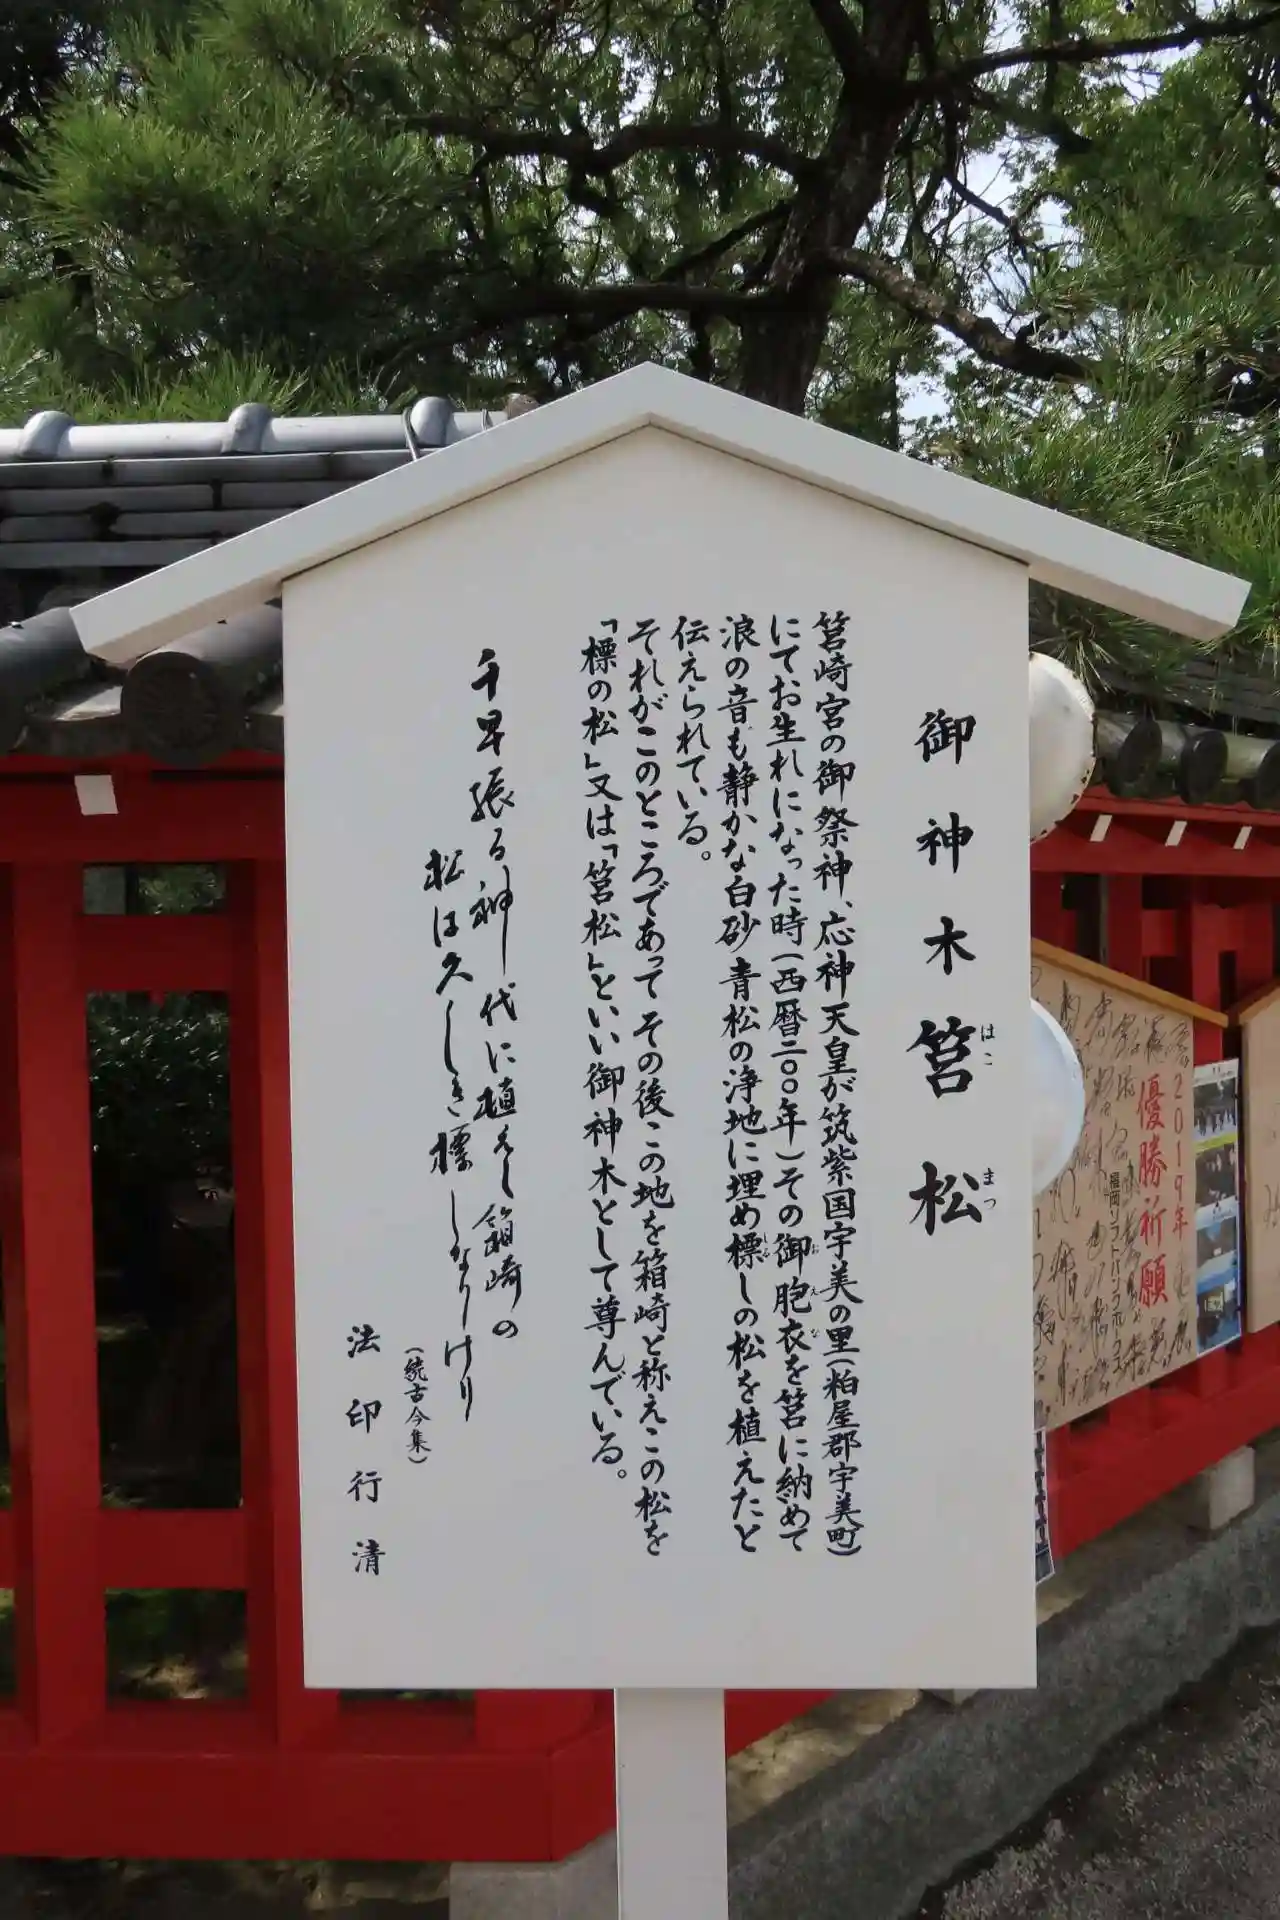 御神木筥松
はこ
まつ
筥崎宮の御祭神、応神天皇が筑紫国宇美の里(粕屋郡宇美町)
にてお生れになった時(西暦二〇〇年)その御胞衣を筥に納めて
おえな
浪の音も静かな白砂青松の浄地に埋め標しの松を植えたと
しる
伝えられている。
それがこのところであってその後この地を箱崎と称えこの松を
「標の松」又は「筥松」といい御神木として尊んでいる。
千早振る神代に植えし箱崎の
松は久しき標しなりけり
(続古今集)
法印行清
2019年
優勝祈願
福岡ソフトバンクホークス